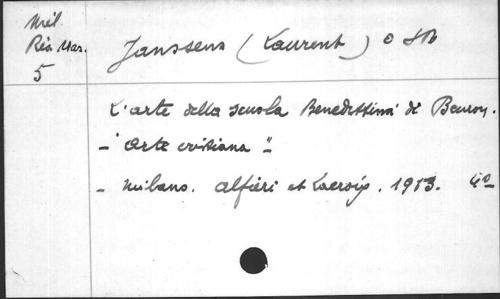 Mél.
Rés. Mar.
5
Janssens (Laurent) O SB
L'arte della scuola Benedettina di Beuron.
- "Arte cristiana"
- Milano. Alfieri et Lacroix. 1913. 4°